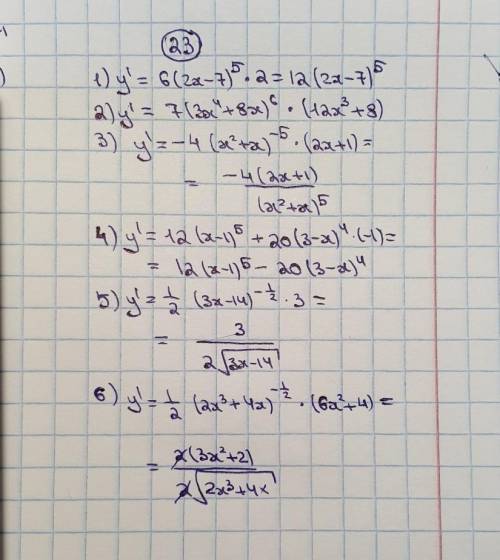 23
1) y' = 6(2x-7)⁵ · 2 = 12(2x-7)⁵
2) y' = 7(3x⁴+8x)⁶ · (12x³+8)
3) y' = -4 (x²+x)⁻⁵ · (2x+1) =
= -4(2x+1) / (x²+x)⁵
4) y' = 12(x-1)⁵ + 20(3-x)⁴ · (-1) =
= 12(x-1)⁵ - 20(3-x)⁴
5) y' = 1/2 (3x-14)^(-1/2) · 3 =
= 3 / 2√(3x-14)
6) y' = 1/2 (2x³+4x)^(-1/2) · (6x²+4) =
= 2(3x²+2) / 2√(2x³+4x)